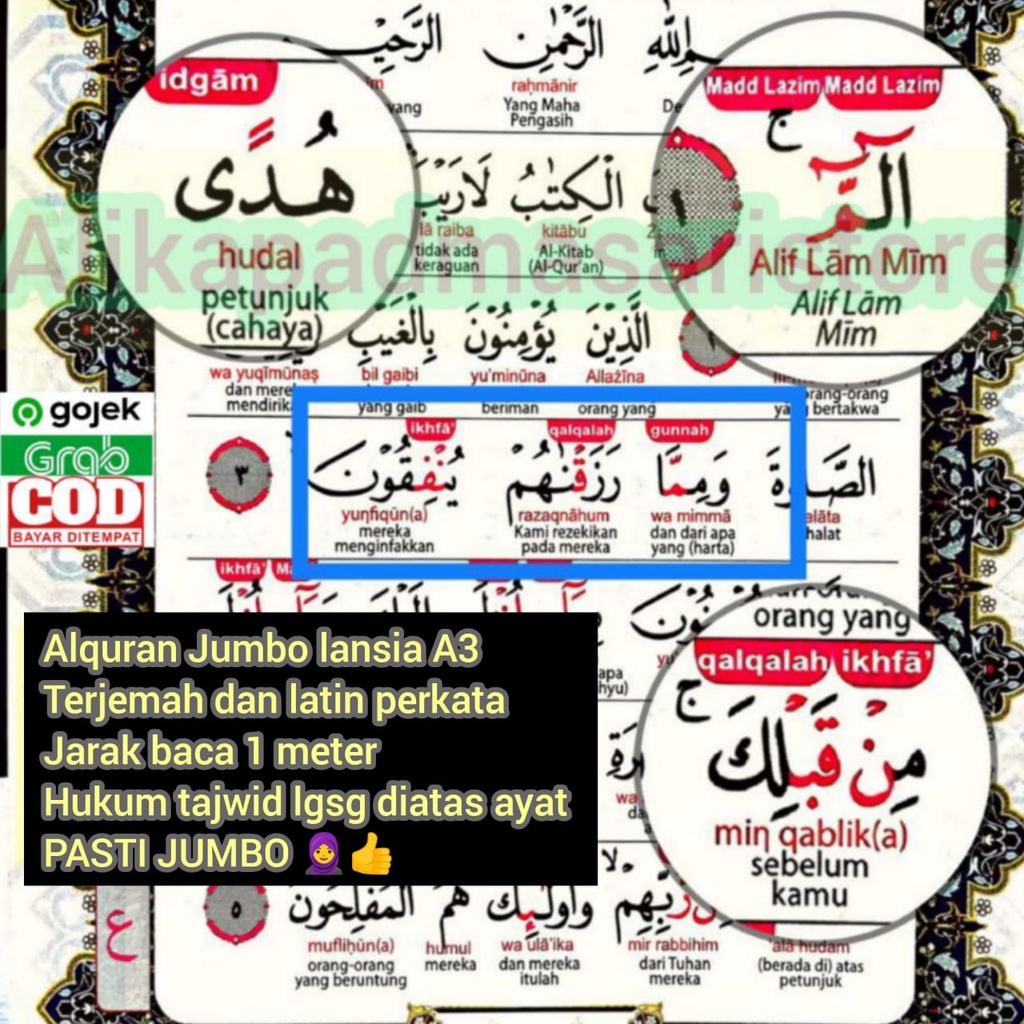 اللهِ الرَّحْمٰنِ الرَّحِيْمِ
raḥmānir
Yang Maha
Pengasih
idgām
هُدًى
hudal
petunjuk
(cahaya)
Madd Lazim Madd Lazim
الٓمّٓ ج
Alif Lām Mīm
Alif Lām
Mīm
١
الْكِتٰبُ لَا رَيْبَ
lā raiba kitābu
tidak ada Al-Kitab
keraguan (Al-Qur'an)
Atikapadmasaristore
الَّذِيْنَ يُؤْمِنُوْنَ بِالْغَيْبِ
wa yuqīmūnaṣ bil gaibi yu'minūna Allażīna
dan mere
mendirik yang gaib beriman orang yang
orang-orang
bertakwa
gojek
Grab
COD
BAYAR DITEMPAT
ikhfā' qalqalah gunnah
الصَّلٰوةَ وَمِمَّا رَزَقْنٰهُمْ يُنْفِقُوْنَ ٣
yunfiqūn(a) razaqnāhum wa mimmā alāta
mereka Kami rezekikan dan dari apa halat
menginfakkan pada mereka yang (harta)
ikhfā' Ma
orang yang
qalqalah ikhfā'
مِنْ قَبْلِكَ ج
min qablik(a)
sebelum
kamu
Alquran Jumbo lansia A3
Terjemah dan latin perkata
Jarak baca 1 meter
Hukum tajwid lgsg diatas ayat
PASTI JUMBO 🧕👍
apa
hyu)
wa
da
ع
رَّبِّهِمْ وَاُولٰۤىِٕكَ هُمُ الْمُفْلِحُوْنَ ٥
mufliḥūn(a) humul wa ulā'ika mir rabbihim 'alā hudam
orang-orang mereka dan mereka dari Tuhan (berada di) atas
yang beruntung itulah mereka petunjuk